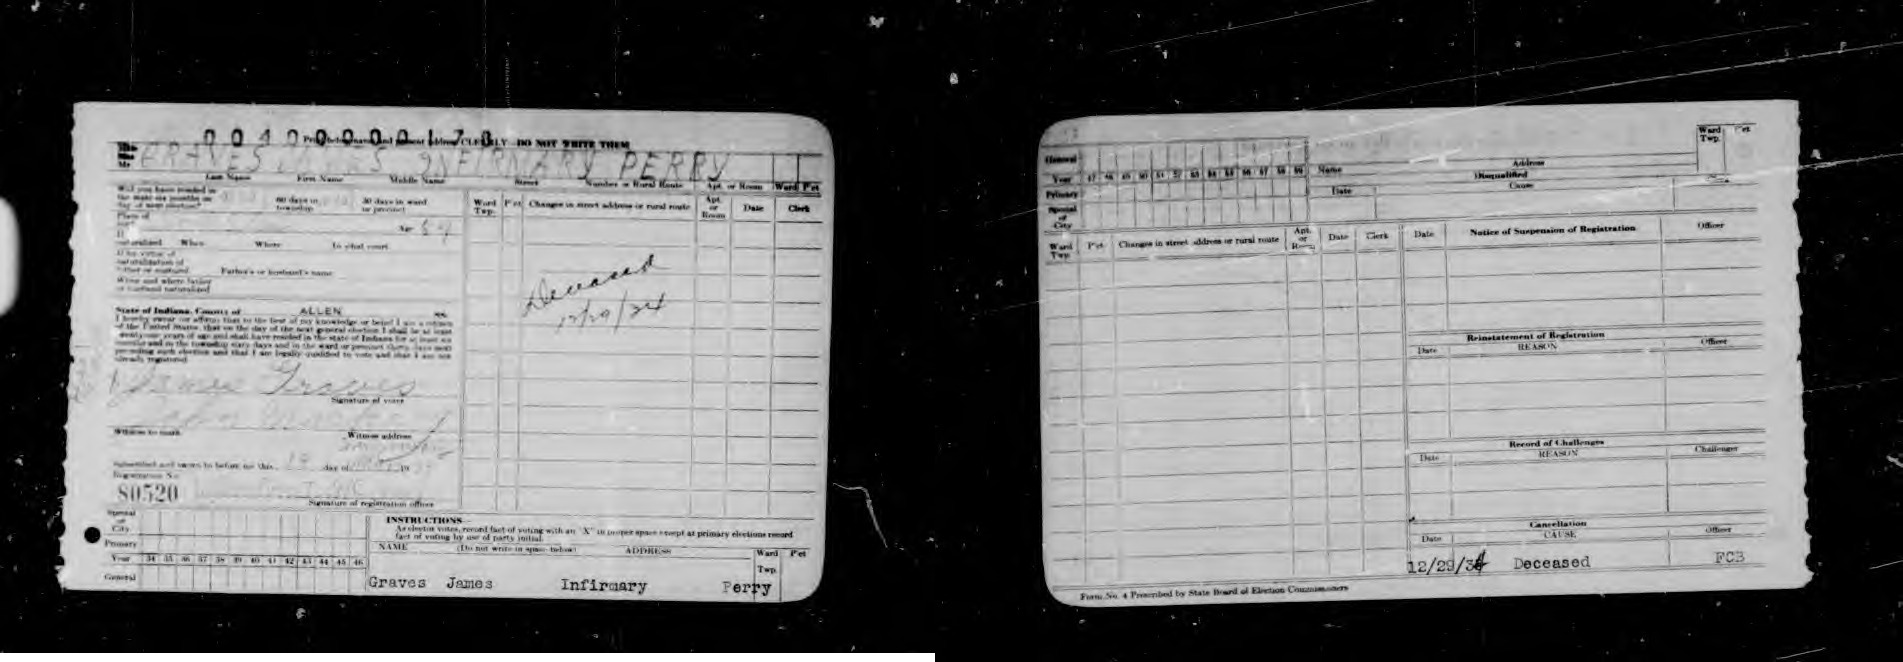 0040000178
Print below name and present address CLEARLY—DO NOT WRITE THEM
GRAVES JAMES INFIRMARY PERRY
Last Name First Name Middle Name Street Number or Rural Route Apt. or Room Ward P'ct
Will you have resided in
the state six months on
day of next election?
60 days in
township
30 days in ward
or precinct
Place of
Age 64
If
naturalized When Where In what court
If by virtue of
naturalization of
father or husband Father's or husband's name
When and where father
or husband naturalized
State of Indiana, County of ALLEN ss.
I hereby swear (or affirm) that to the best of my knowledge or belief I am a citizen
of the United States, that on the day of the next general election I shall be at least
twenty-one years of age and shall have resided in the state of Indiana for at least six
months and in the township sixty days and in the ward or precinct thirty days next
preceding such election and that I am legally qualified to vote and that I am not
already registered.
James Graves
Signature of voter
Witness to mark Witness address
Subscribed and sworn to before me this day of 19
Registration No.
80520
Signature of registration officer
Ward Twp. P'ct Changes in street address or rural route Apt. or Room Date Clerk
Deceased
12/29/34
Special
or
City
Primary
Year 34 35 36 37 38 39 40 41 42 43 44 45 46
General
INSTRUCTIONS—
As elector votes, record fact of voting with an "X" in proper space except at primary elections record
fact of voting by use of party initial.
NAME (Do not write in space below) ADDRESS Ward Twp. P'ct
Graves James Infirmary Perry
General
Year 47 48 49 50 51 52 53 54 55 56 57 58 59
Primary
Special
or
City
Name Address Ward Twp. P'ct
Disqualified
Date Cause
Ward Twp. P'ct Changes in street address or rural route Apt. or Room Date Clerk
Date Notice of Suspension of Registration Officer
Reinstatement of Registration
Date REASON Officer
Record of Challenges
Date REASON Challenger
Cancellation
Date CAUSE Officer
12/29/34 Deceased FCB
Form No. 4 Prescribed by State Board of Election Commissioners